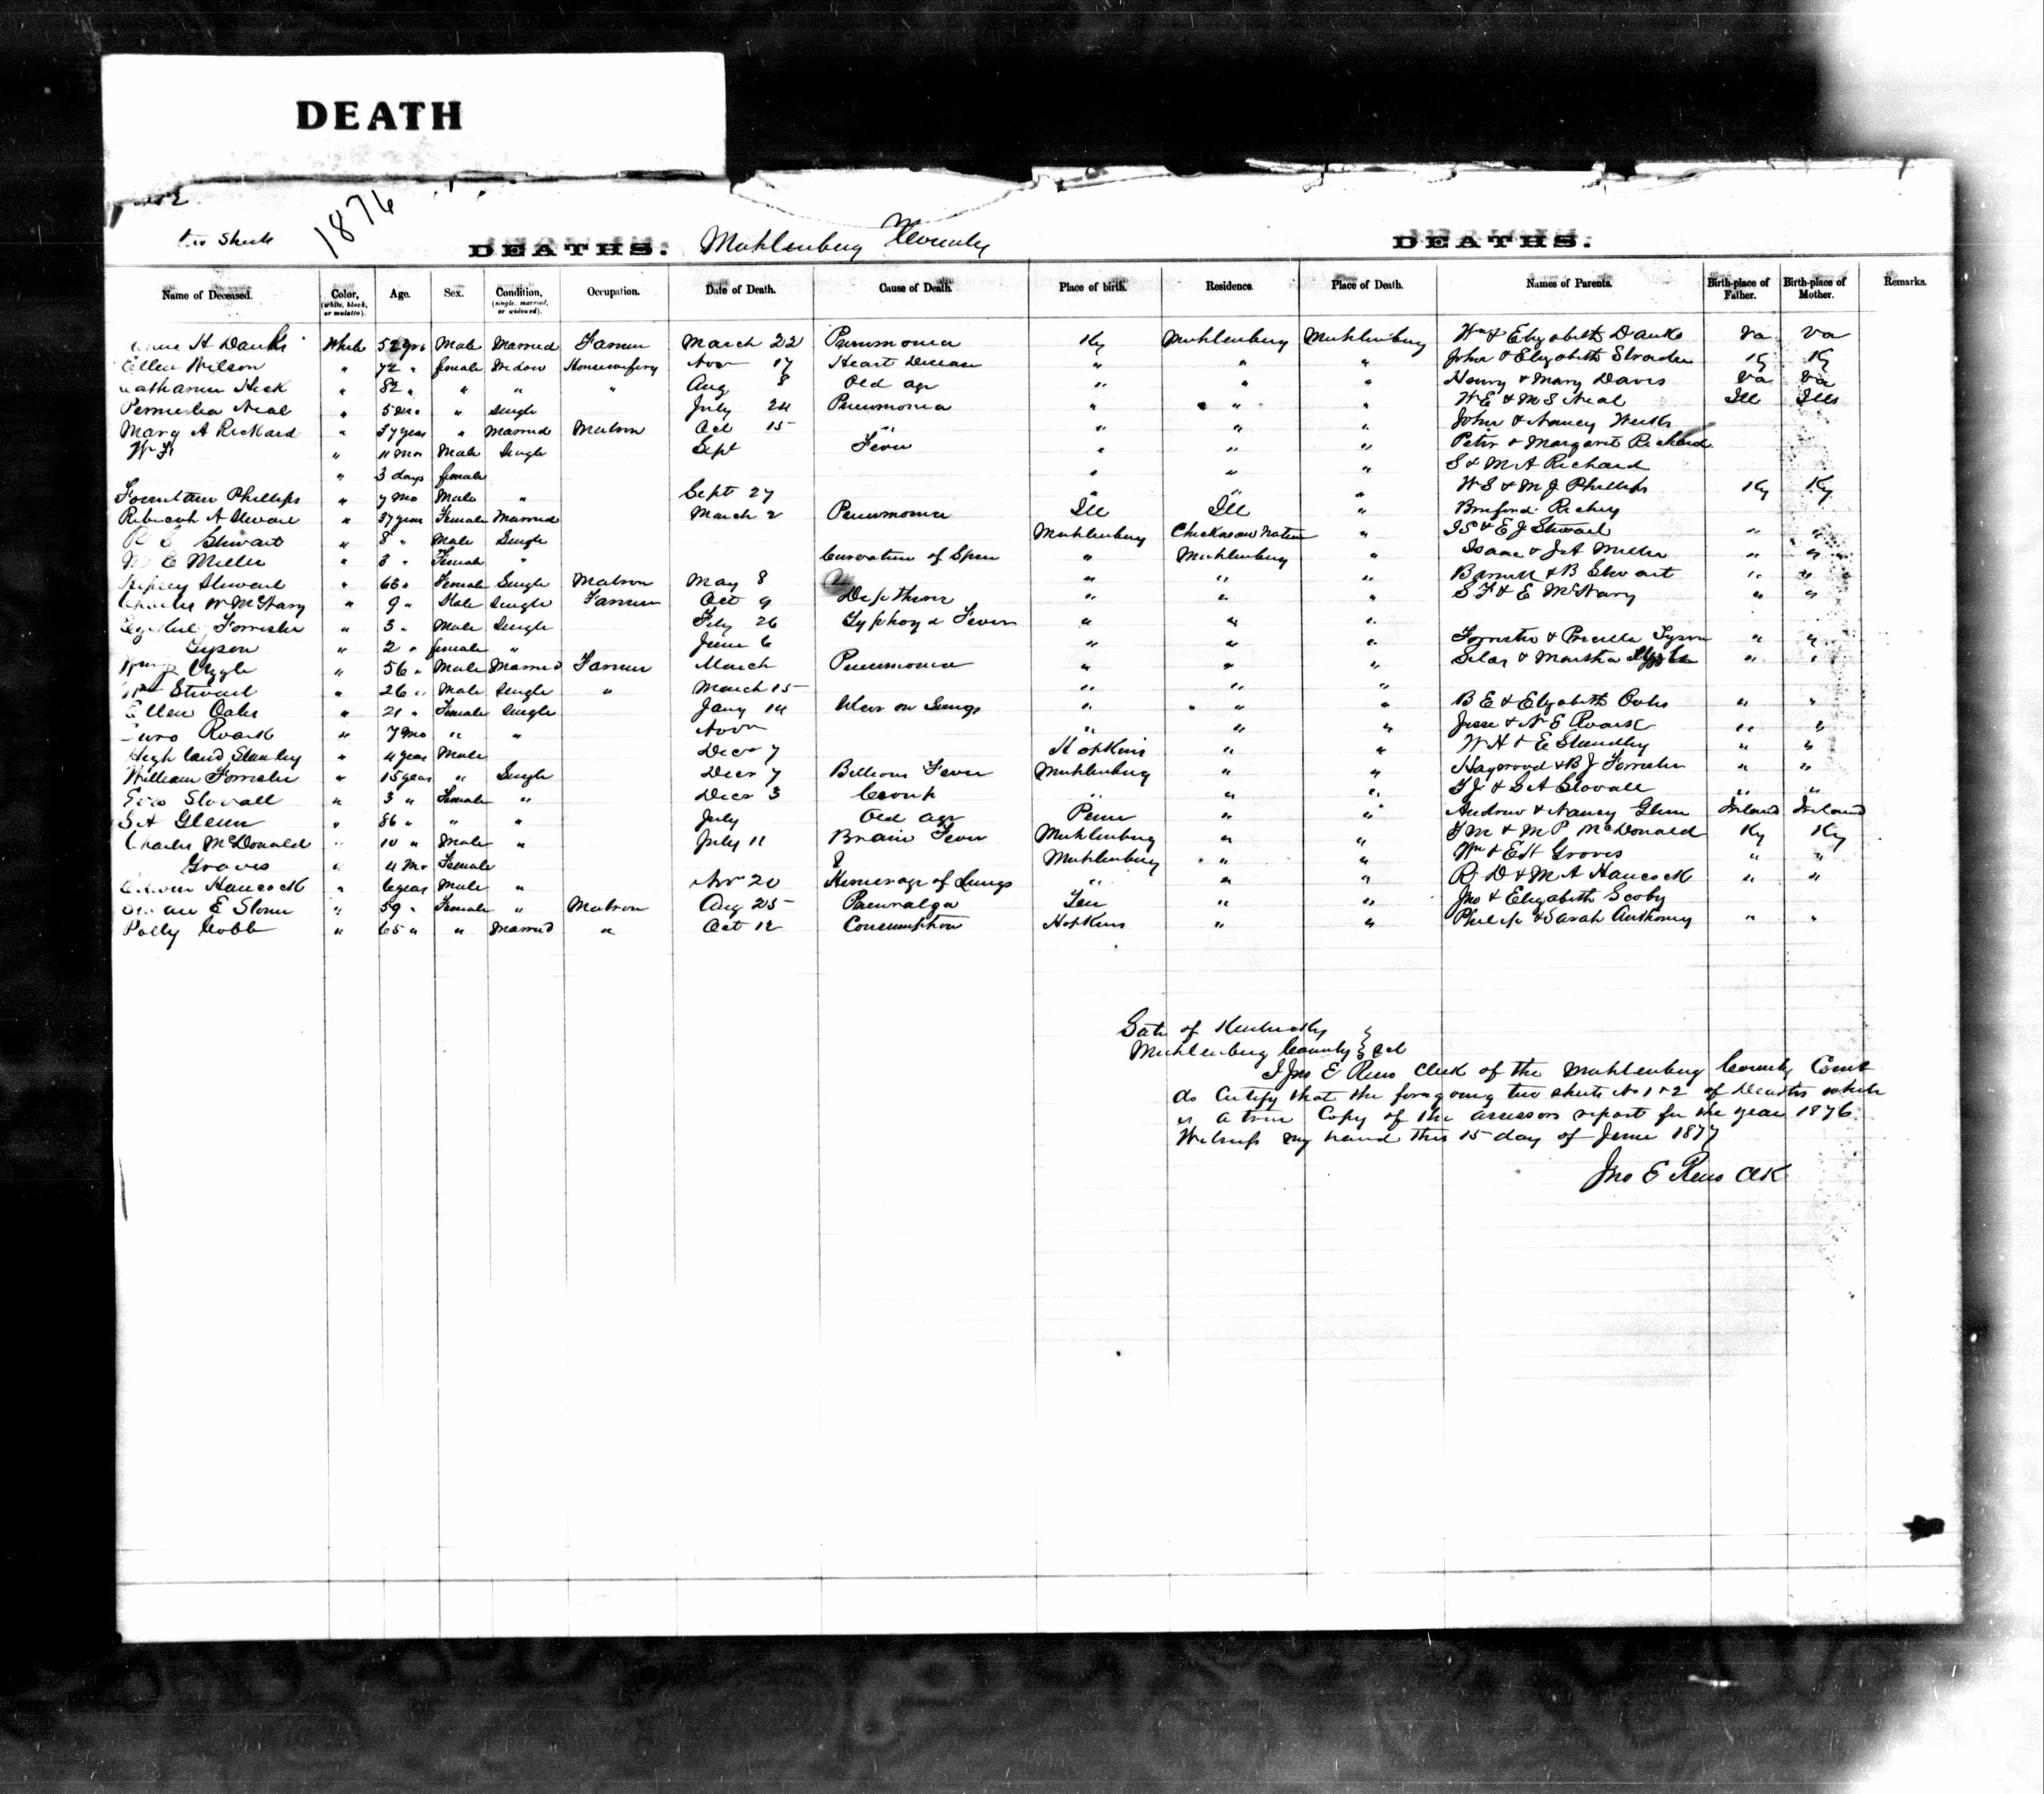 DEATH
1876
two Sheets
DEATHS. Muhlenburg County DEATHS.
Name of Deceased. Color, (white, black, or mulatto). Age. Sex. Condition, (single, married, or widowed). Occupation. Date of Death. Cause of Death. Place of birth. Residence. Place of Death. Names of Parents. Birth-place of Father. Birth-place of Mother. Remarks.
H Danks White 52 yrs Male Married Farmer March 22 Pneumonia Ky Muhlenburg Muhlenburg Wm & Elizabeth Danks Va Va
Ellen Wilson " 72 " female Widow Housewifery Nov 17 Heart Disease " " " John & Elizabeth Strader Ky Ky
Heck " 82 " " " " Aug 8 Old age " " " Henry & Mary Davis Va Va
Permelia Neal " 5 mo " Single July 24 Pneumonia " " " W E & M S Neal Ill Ills
Mary A Rickard " 37 year " Married Matron Oct 15 " " " " John & Nancy Weeks
" 11 mo Male Single Sept Fever " " " Peter & Margaret Richard
" 3 days female " " " S & M A Richard
Phillips " 7 mo Male " Sept 27 " " " W S & M J Phillips Ky Ky
Rebecah A Stewart " 37 year Female Married March 2 Pneumonia Ill Ill " Richey
Stewart " 8 " Male Single Muhlenburg Chickasaw Nation " I S & E J Stewart " "
E Miller " 3 " Female " Curvature of Spine " Muhlenburg " Isaac & J A Miller " "
Stewart " 66 " Female Single Matron May 8 " " " & B Stewart " "
Charles W McNary " 9 " Male Single Farmer Oct 9 " " " S F & E McNary " "
Forrester " 3 " Male Single Feby 26 Typhoyd Fever " " "
Tyson " 2 " female " June 6 " " " Forrester & Priscilla Tyson " "
" 56 " Male Married Farmer March Pneumonia " " " Silas & Martha " "
Wm Stewart " 26 " Male Single " March 15 " " "
Ellen Oates " 21 " Female Single Jany 14 on Lungs " " " B E & Elizabeth Oates " "
Roark " 7 mo " " Nov " " " Jesse & N E Roark " "
Highland Stanley " 4 year Male Decr 7 Hopkins " " W H & E Standley " "
William Forrester " 15 year " Single Decr 7 Billious Fever Muhlenburg " " Haywood & B J Forrester " "
Stovall " 3 " Female " Decr 3 Croup " " " T J & S A Stovall " "
S A Glenn " 86 " " " July Old age Penn " " Andrew & Nancy Glenn Ireland Ireland
Charles McDonald " 10 " Male " July 11 Brain Fever Muhlenburg " " & M P McDonald Ky Ky
Groves " 4 Mo Female ? Muhlenburg " " Wm & E H Groves " "
Hancock " 6 year Male " Nov 20 Hemerage of Lungs " " " R D & M A Hancock " "
E " 59 " Female " Matron Aug 25 Ten " " Jno & Elizabeth Scoby
Polly Cobb " 65 " " Married " Oct 12 Consumption Hopkins " " Philip & Sarah Anthony " "
State of Kentucky }
Muhlenburg County } Sct
I Jno E Reno Clerk of the Muhlenburg County Court
do Certify that the foregoing two sheets No 1 & 2 of Deaths which
is a true Copy of the assessors report for the year 1876
Witness my hand this 15 day of June 1877
Jno E Reno Clk